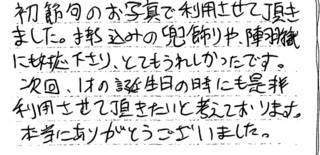 初節句のお写真で利用させて頂き
ました。持ち込みの兜飾りや、陣羽織
にも対応下さり、とてもうれしかったです。
次回、1才の誕生日の時にも是非
利用させて頂きたいと考えております。
本当にありがとうございました。